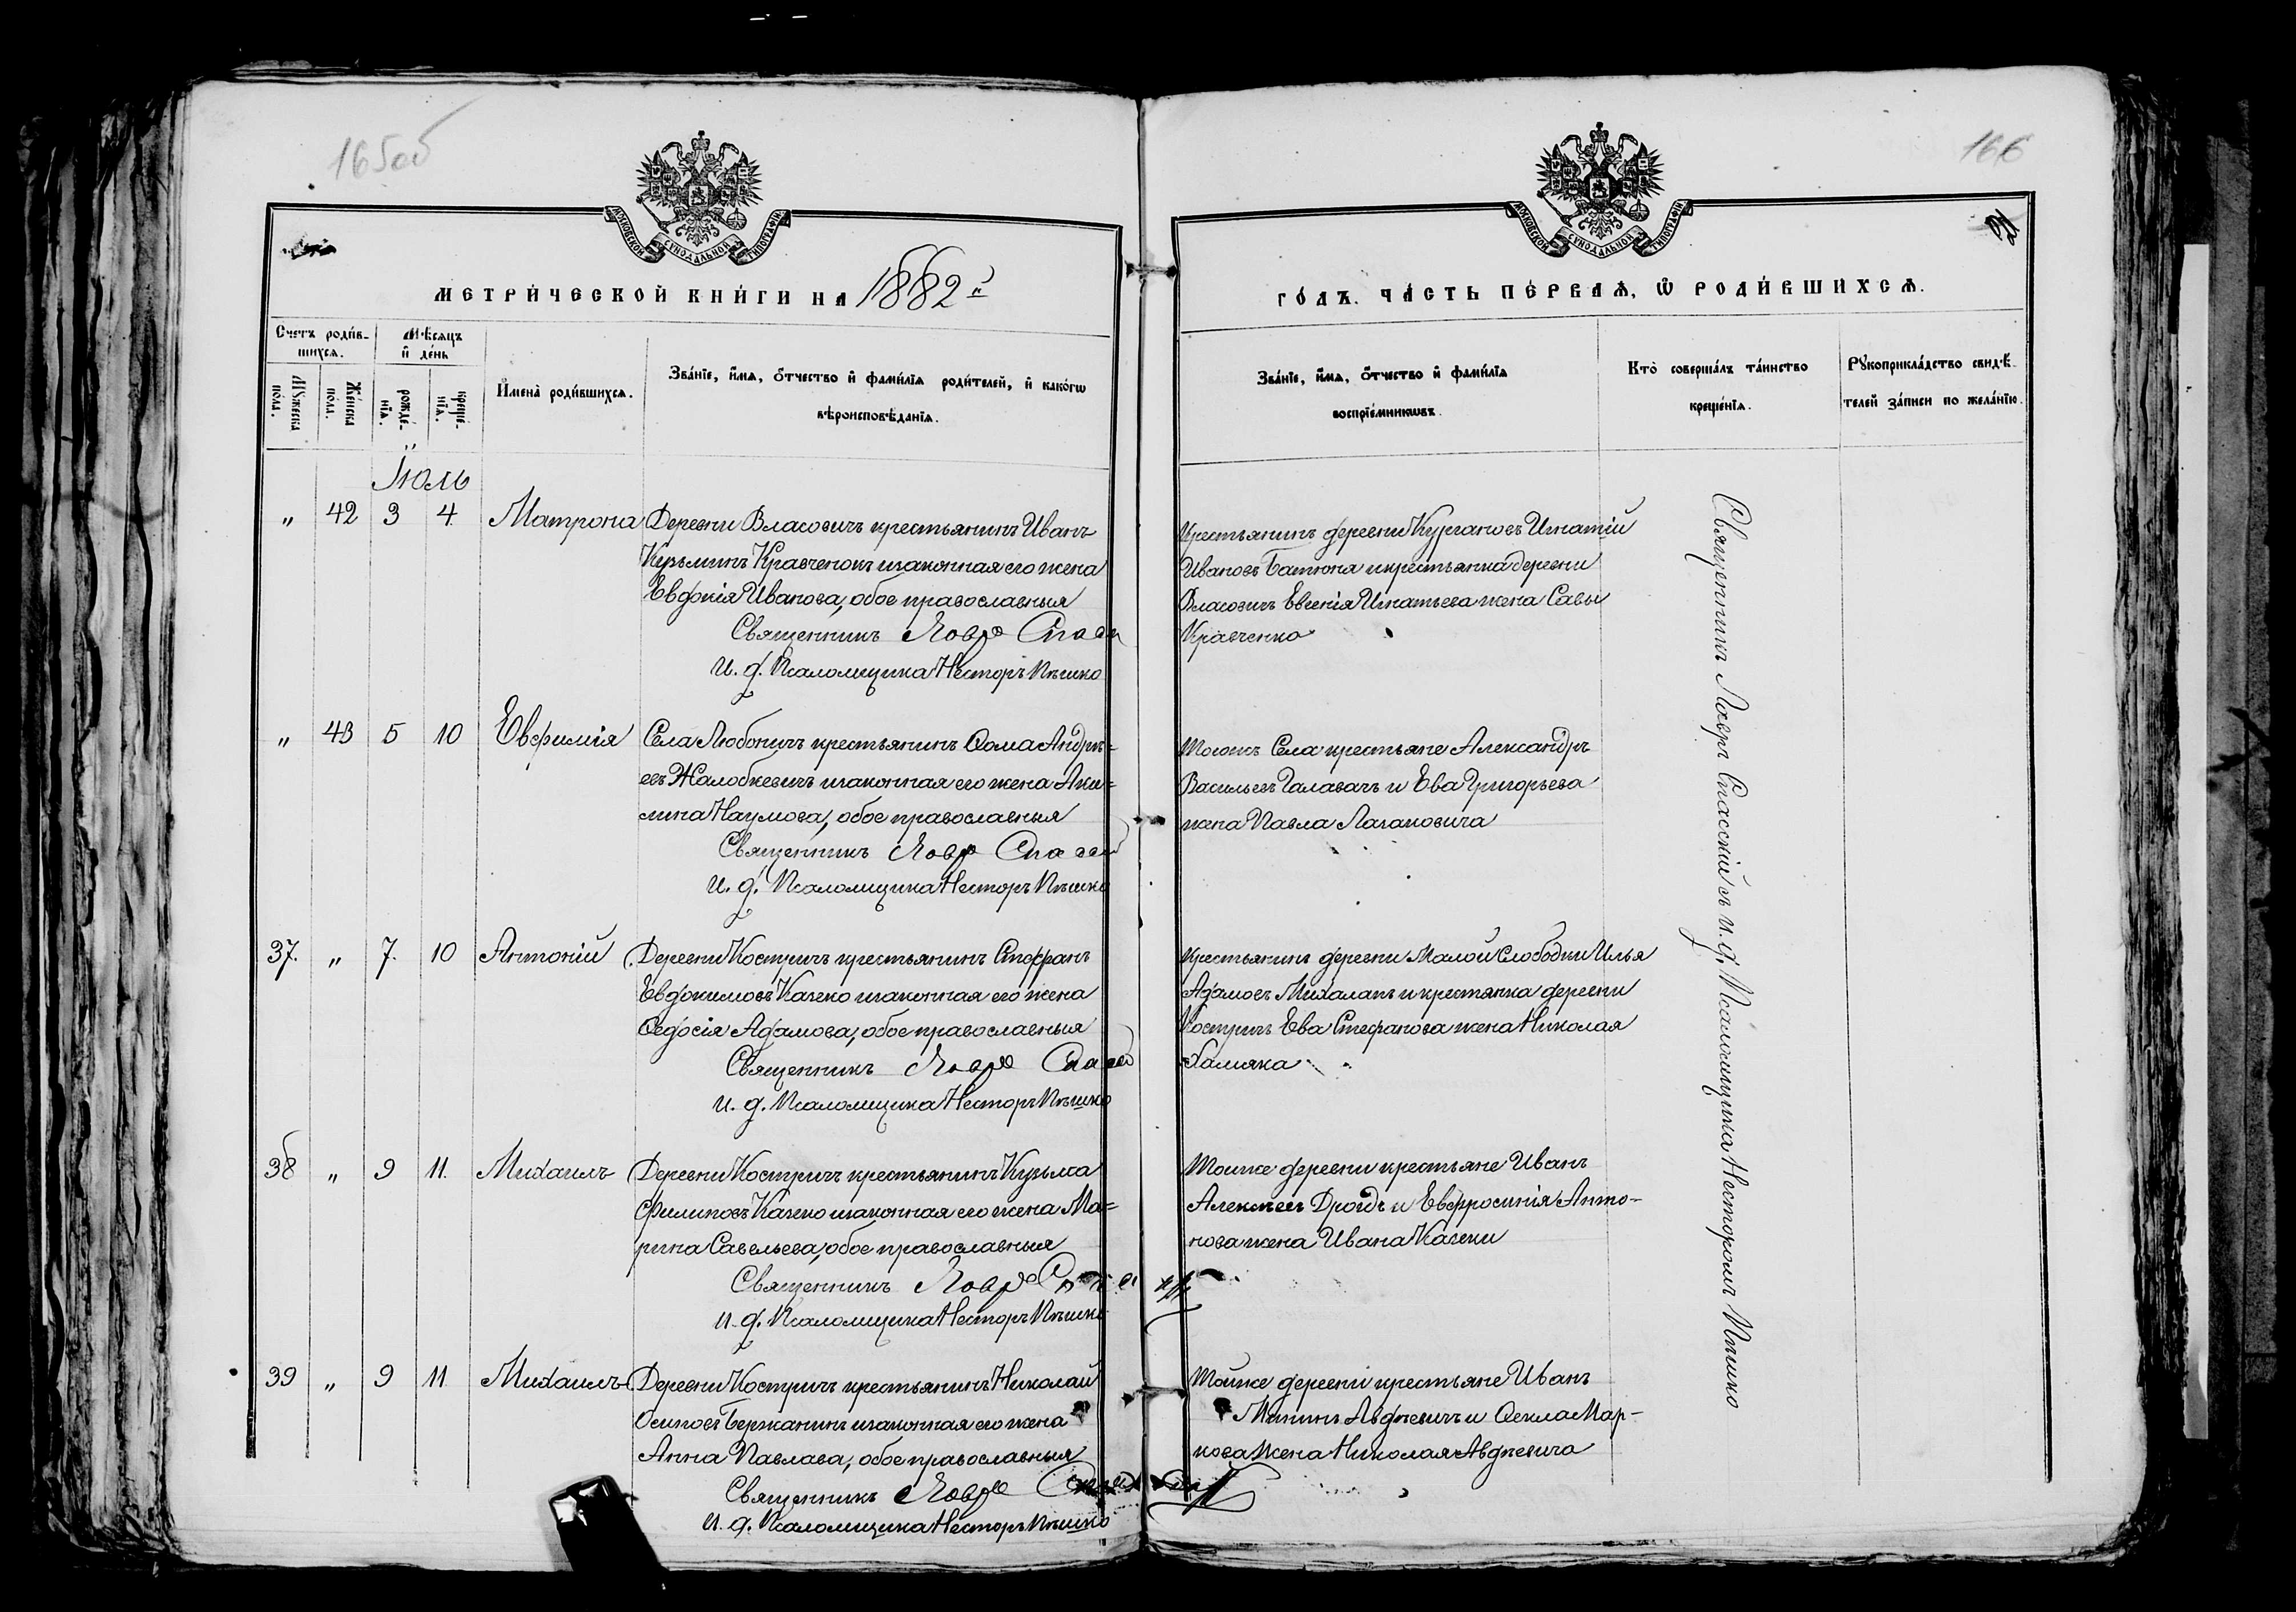 165об
166
МОСКОВСКОЙ СУНОДАЛЬНОЙ ТИПОГРАФІИ
МОСКОВСКОЙ СУНОДАЛЬНОЙ ТИПОГРАФІИ
МЕТРИ́ЧЕСКОЙ КНИ́ГИ НА 1882 й
ГО́ДЪ. ЧА́СТЬ ПЕ́РВАѦ, Ѡ РОДИ́ВШИХСѦ.
Счетъ роди́в-
шихсѧ.
Мѣсяцъ
и҆ де́нь
Мꙋжеска по́ла.
Же́нска по́ла.
рожде́-
нїѧ.
креще́-
нїѧ.
И҆мена̀ роди́вшихсѧ.
Зва́нїе, и҆́мѧ, ѻ҆́тчество и҆ фами́лїѧ роди́телей, и҆ како́гѡ
вѣроисповѣ́данїѧ.
Зва́нїе, и҆́мѧ, ѻ҆́тчество и҆ фами́лїѧ
воспрїе́мникѡвъ.
Кто̀ соверша́лъ та́инство
креще́нїѧ.
Рꙋкоприкла́дство свидѣ́-
телей за́писи по жела́нїю.
Іюль
„ 42 3 4 Матрона Деревни Власовичъ крестьянинъ Иванъ
Кузьминъ Кравченокъ и законная его жена
Евдокія Иванова, обое православныя
Священникъ Лавръ Спасск
И. д. Псаломщика Несторъ Пѣшко
Крестьянинъ деревни Кургановъ Игнатій
Ивановъ Батюня и крестьянка деревни
Власовичъ Евгенія Игнатьева жена Савы
Кравченко
„ 43 5 10 Евфимія Села Любоничъ крестьянинъ Ѳома Андрѣ=
евъ Жалобкевичъ и законная его жена Аки=
лина Наумова, обое православныя
Священникъ Лавръ Спасск
И. д. Псаломщика Несторъ Пѣшко
Тогожъ Села крестьяне Александръ
Васильевъ Галавачъ и Ева Григорьева
жена Павла Лагановича
37. „ 7. 10 Антоній Деревни Костричъ крестьянинъ Стефанъ
Евдокимовъ Качеко и законная его жена
Ѳедосія Адамова, обое православныя
Священникъ Лавръ Спасск
И. д. Псаломщика Несторъ Пѣшко
Крестьянинъ деревни Малой Слободки Илья
Адамовъ Михалапъ и крестянка деревни
Костричъ Ева Стефанова жена Николая
Хамяка
38 „ 9 11. Михаилъ Деревни Костричъ крестьянинъ Кузьма
Филиповъ Качеко и законная его жена Ма=
рина Савельева, обое православныя
Священникъ Лавръ
И. д. Псаломщика Несторъ Пѣшко
Тоиже деревни крестьяне Иванъ
Алексѣевъ Дроздъ и Евфросинія Анто-
нова жена Ивана Качеки
39 „ 9 11 Михаилъ Деревни Костричъ крестьянинъ Николай
Осиповъ Бержанинъ и законная его жена
Анна Павлава, обое православныя
Священникъ Лавръ
И. д. Псаломщика Несторъ Пѣшко
Тойже деревни крестьяне Иванъ
Мининъ Авдѣевичъ и Ѳекла Мар-
кова жена Николая Авдѣевича
Священникъ Лавръ Спасскій съ и. д. Псаломщика Несторомъ Пѣшко